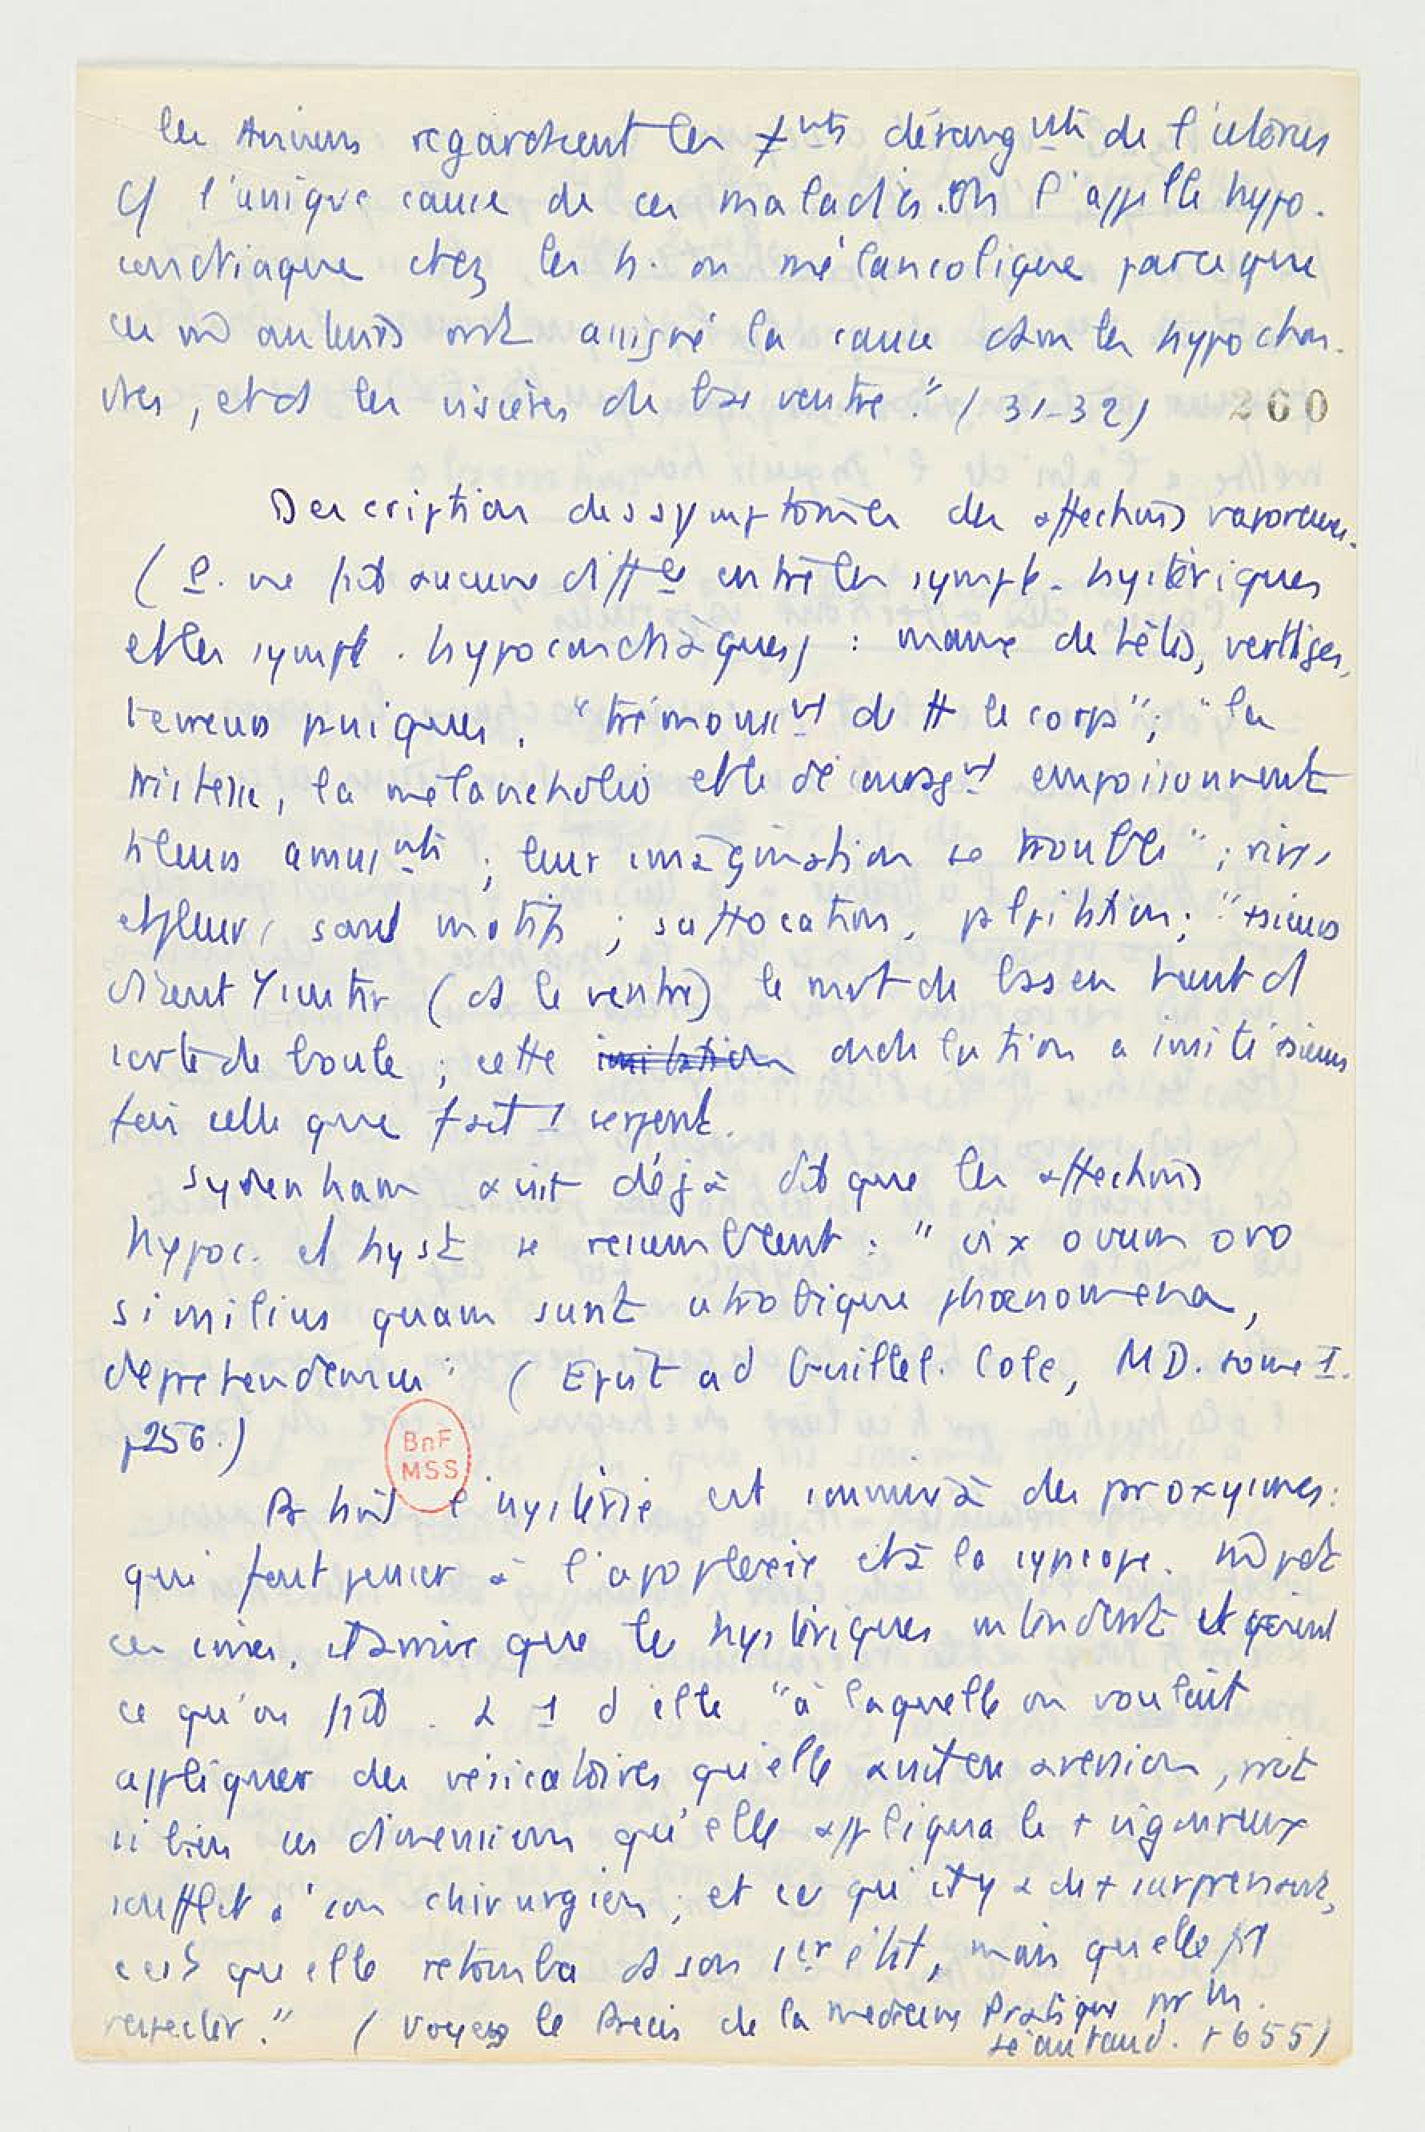 les Anciens regardaient les ≠nts dérangnts de l'utérus
c/ l'unique cause de ces maladies. On l'appelle hypo.
condriaque chez les h. ou mélancolique parce que
ces m̂ auteurs ont assigné la cause dans les hypochon.
dres, et ds les viscères de bas ventre." (31-32) 260
Description des symptômes des affections vaporeuses.
(P. ne fait aucune diffce entre les sympt. hystériques
et les sympt. hypocondriaques) : maux de têtes, vertiges,
terreurs paniques. "trémoussnt de tt le corps"; "la
tristesse, la mélancholie et le découragnt empoisonnent
ts leurs amusnts ; leur imagination se trouble" ; rires
et pleurs sans motifs ; suffocation, palpitation ; "+sieurs
disent sentir (ds le ventre) le mvt de
sorte de boule ; cette imitation ondulation a imité +sieurs
fois celle que fait 1 serpent.
Sydenham avait déjà dit que les affections
hypoc. et hyst se ressemblent : "vix ovum ovo
similius quam sunt utrobique phœnomena,
deprehendemus" (Epist ad Guillel. Cole, MD. tome I.
p256.)
l'hystérie est commune à des paroxysmes:
qui font penser à l'apoplexie et à la syncope. m̂ pdt
ces crises, il arrive que les hystériques entendent et
ce qu'on fait. 1 d'elle "à laquelle on voulait
appliquer des vésicatoires qu'elle avait en aversion, prit
si bien ses dimensions qu'elle appliqua le + vigoureux
soufflet à son chirurgien ; et ce qu'il y a de + surprenant,
c'est qu'elle retomba ds son 1er état, mais qu'elle fit
respecter." (Voyez le Précis de la médecine Pratique par M.
Lieutaud. p 655)
BnF
MSS